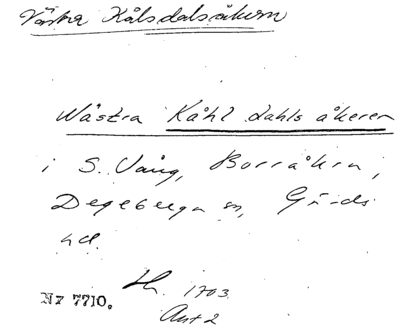 Västra Kålsdalsåkern
Wästra Kåhl dahls åkeren
i S. Vång, Borråkra,
Degeberga sn, Gärds
hd
Nr 7710. Lh. 1703
Akt 2